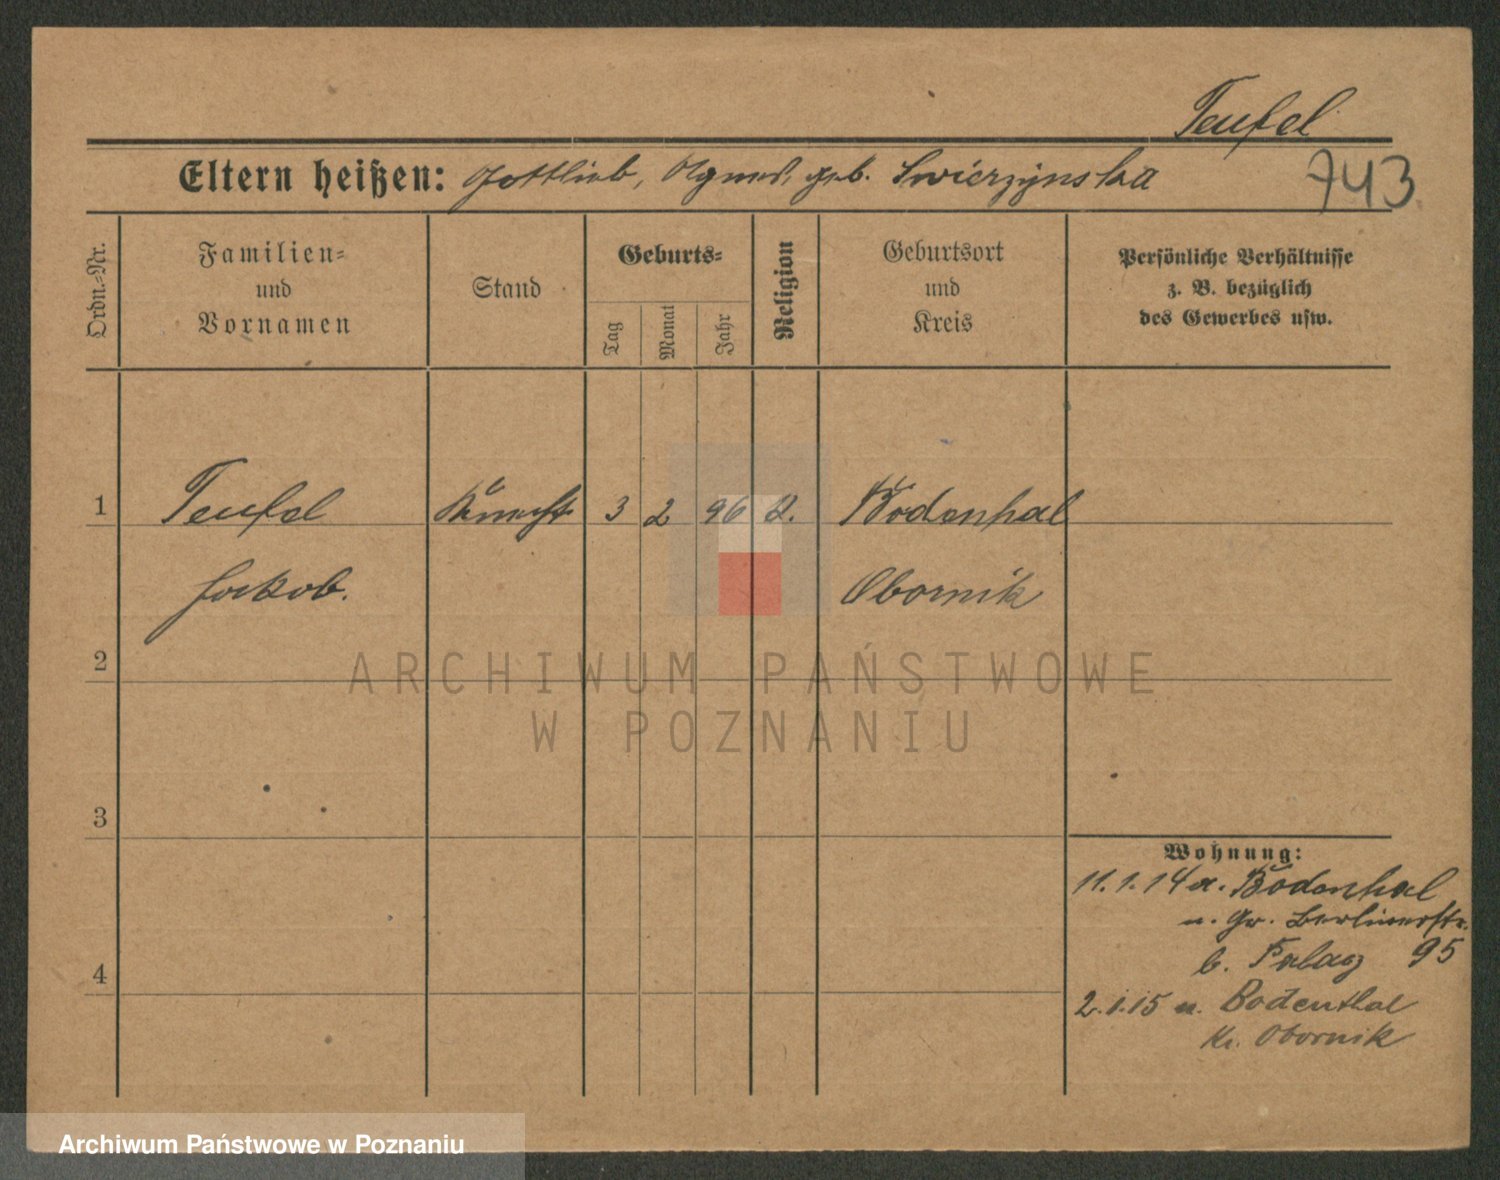 Teufel
Eltern heißen: Gottlieb, Agnes, geb. Swierzynska
743
Ordn.-Nr.
Familien-
und
Vornamen
Stand
Geburts-
Tag
Monat
Jahr
Religion
Geburtsort
und
Kreis
Persönliche Verhältnisse
z. B. bezüglich
des Gewerbes usw.
1 Teufel Knecht 3 2 96 k. Bodenthal
Jakob. Obornik
2
ARCHIWUM PAŃSTWOWE
W POZNANIU
3
Wohnung:
11.1.14 a. Bodenthal
n. Gr. Berlinerstr.
b. Palacz 95
2.1.15 n. Bodenthal
Kr. Obornik
4
Archiwum Państwowe w Poznaniu